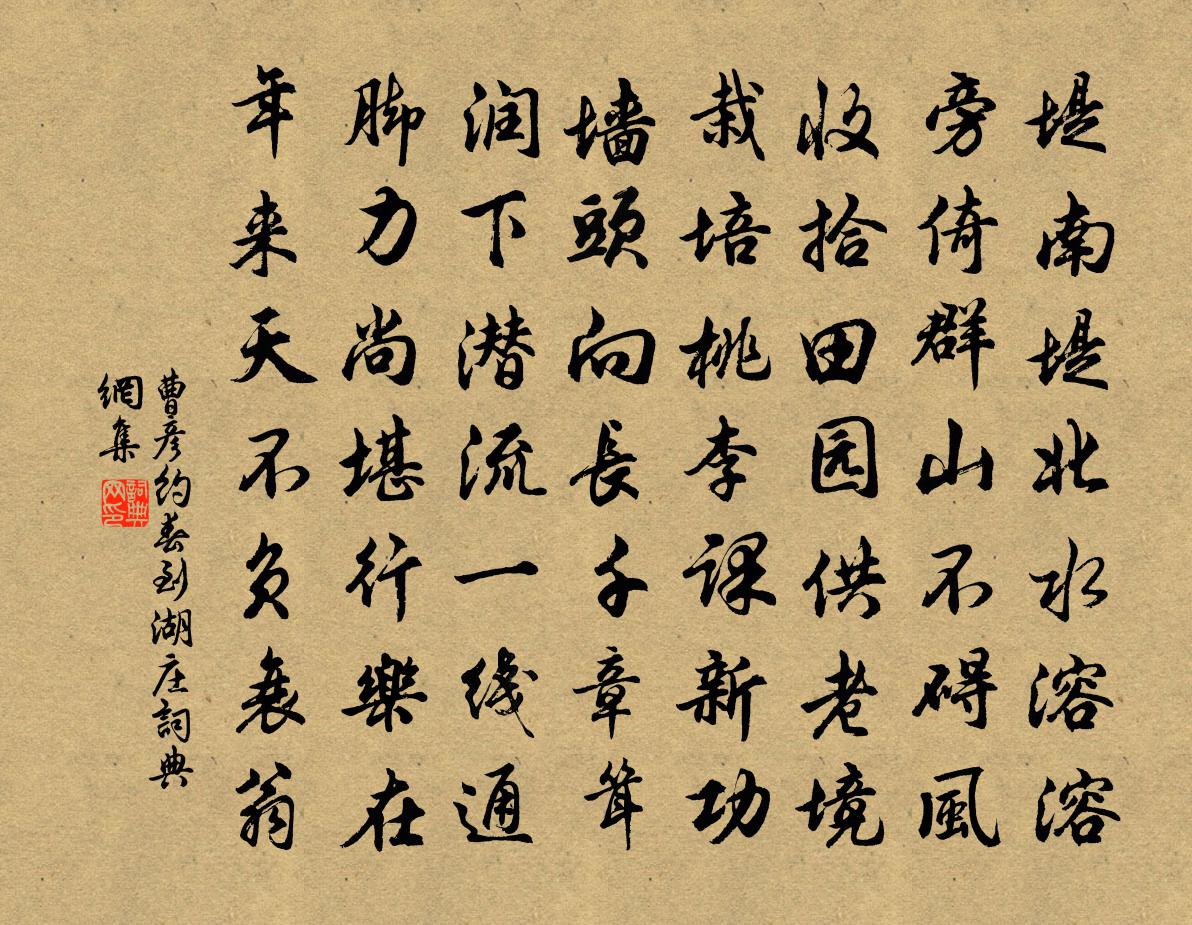 堤南堤北水溶溶
旁倚群山不碍風
收拾田园供老境
栽培桃李课新功
墙頭向長千章耸
润下潜流一线通
脚力尚堪行樂在
年来天不负衰翁
曹彦约春到湖庄詞典
網集
詞典
网印